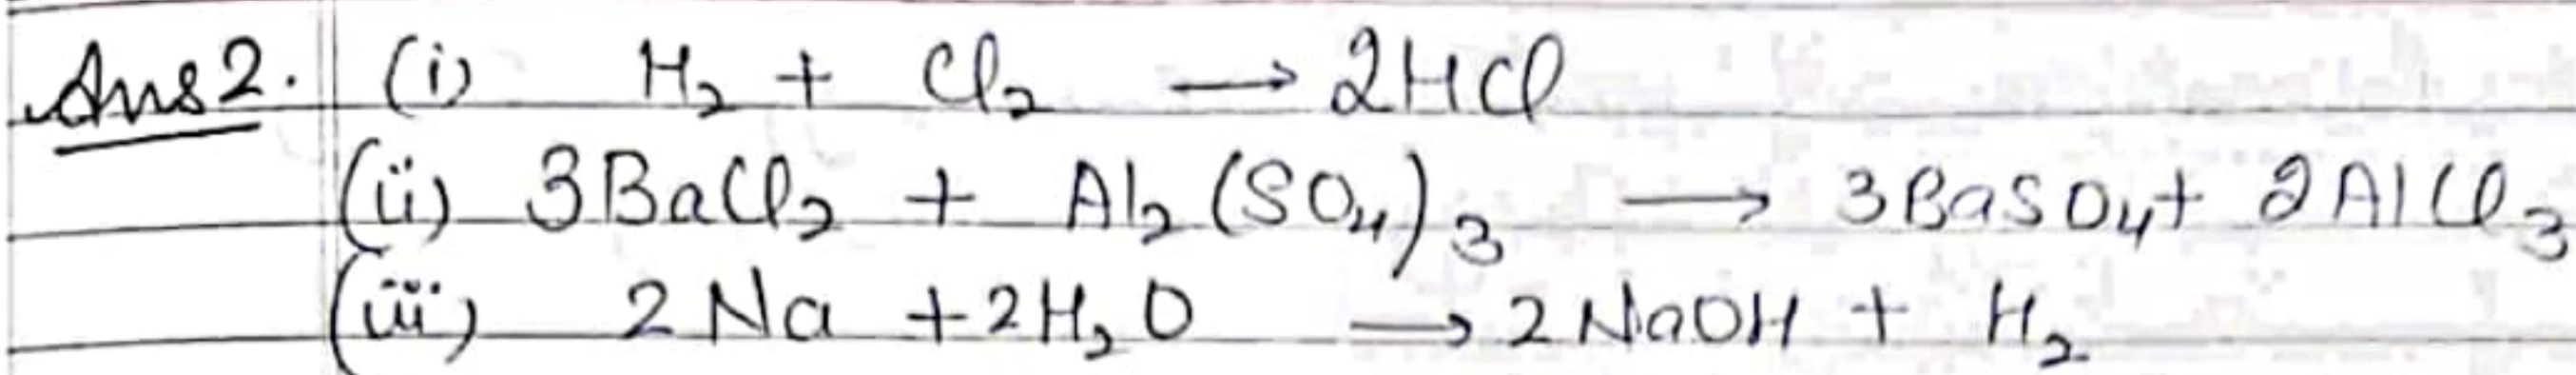 Ans 2. (i) H₂ + Cl₂ → 2HCl
(ii) 3BaCl₂ + Al₂(SO₄)₃ → 3BaSO₄ + 2AlCl₃
(iii) 2Na + 2H₂O → 2NaOH + H₂